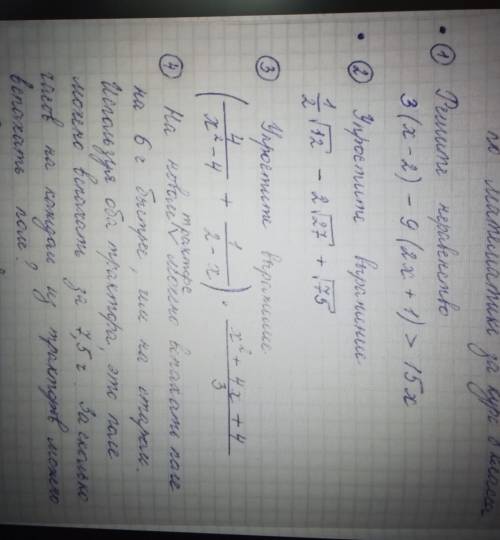 по математике за курс 8 класса
① Решите неравенство
3(x-2) - 9(2x+1) > 15x
② Упростите выражение
1/2 √12 - 2√27 + √75
③ Упростите выражение
(4/(x²-4) + 1/(2-x)) · (x²+4x+4)/3
④ На новом тракторе можно вспахать поле
на 6 ч быстрее, чем на старом.
Используя оба трактора, это поле
можно вспахать за 7,5 ч. За сколько
часов на каждом из тракторов можно
вспахать поле?